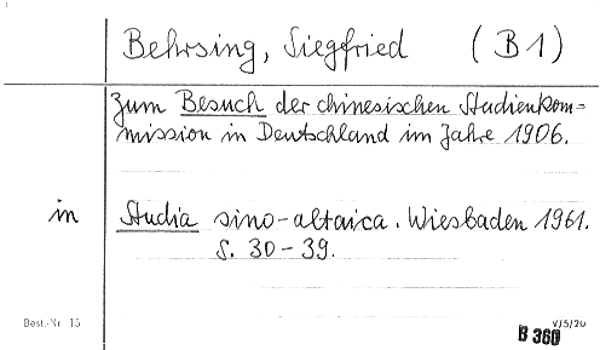 Behrsing, Siegfried (B1)
Zum Besuch der chinesischen Studienkom=
mission in Deutschland im Jahre 1906.
in Studia sino-altaica. Wiesbaden 1961.
S. 30-39.
Best.-Nr 15
V/5/20
B 360